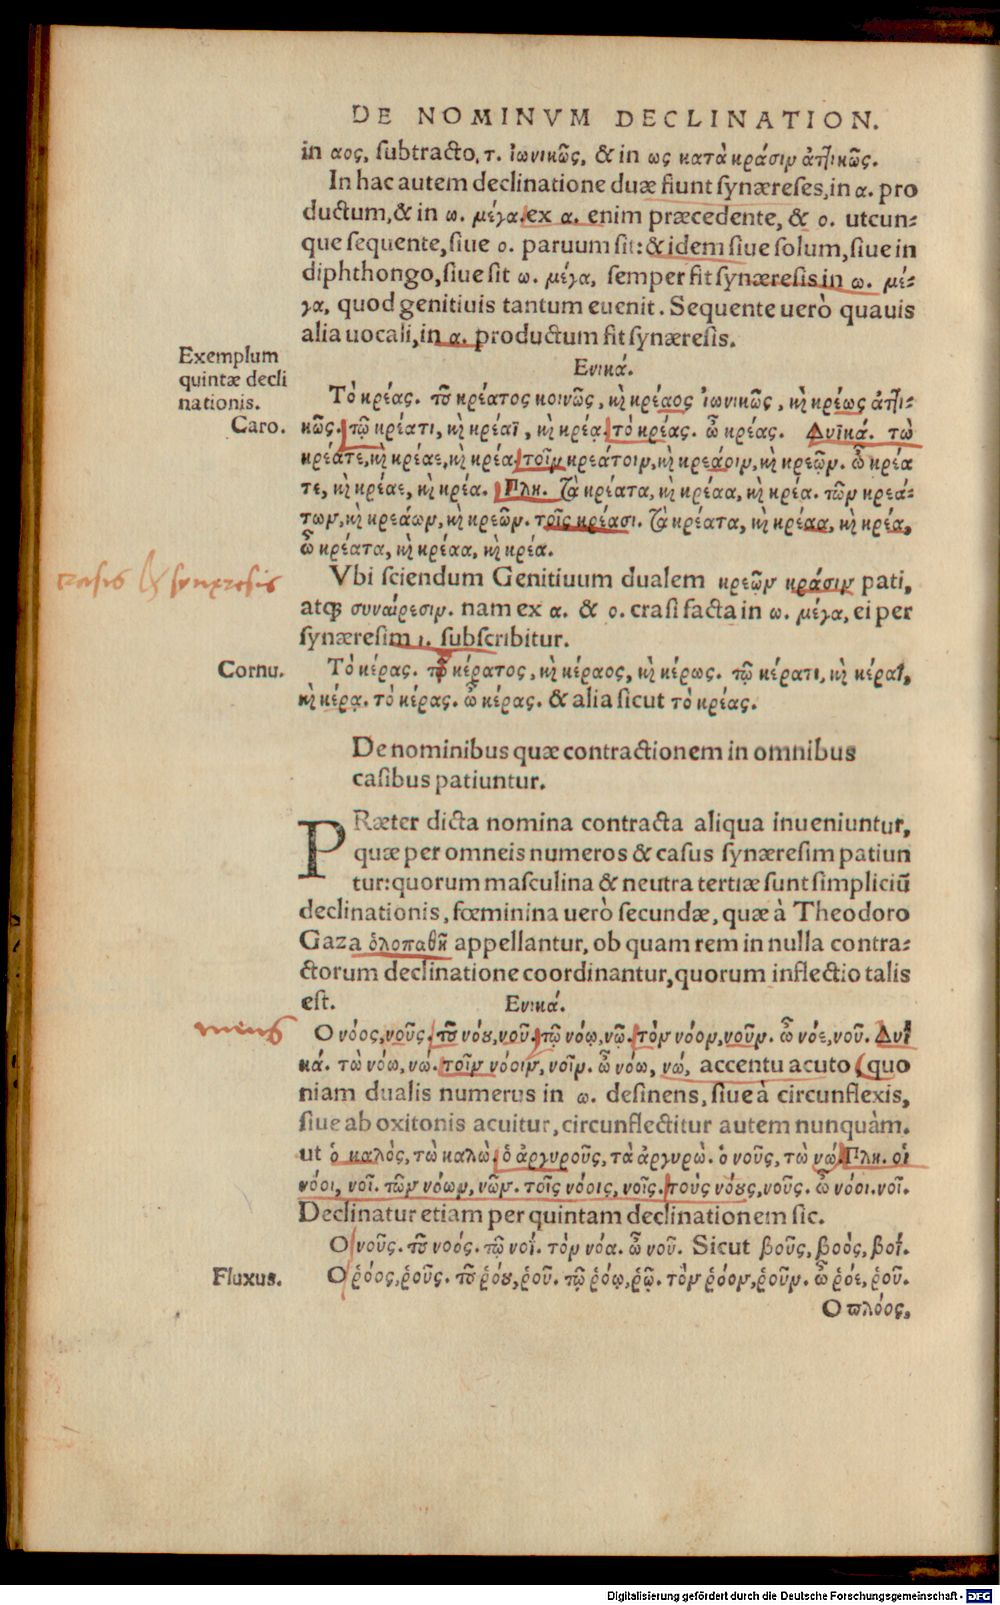 DE NOMINVM DECLINATION.
in αος, subtracto, τ. ἰωνικῶς, & in ως κατὰ κράσιν ἀττικῶς.
In hac autem declinatione duæ fiunt synæreses, in α. pro
ductum, & in ω. μέγα. ex α. enim præcedente, & ο. utcun-
que sequente, siue ο. paruum sit: & idem siue solum, siue in
diphthongo, siue sit ω. μέγα, semper fit synæresis in ω. μέ-
γα, quod genitiuis tantum euenit. Sequente uerò quauis
alia uocali, in α. productum fit synæresis.
Exemplum
quintæ decli
nationis.
Ενικά.
Τὸ κρέας. τοῦ κρέατος κοινῶς, κὶ κρέαος ἰωνικῶς, κὶ κρέως ἀττι-
Caro.
κῶς. τῷ κρέατι, κὶ κρέαϊ, κὶ κρέᾳ. τὸ κρέας. ὦ κρέας. Δυϊκά. τὼ
κρέατε, κὶ κρέαε, κὶ κρέα. τοῖν κρεάτοιν, κὶ κρεάοιν, κὶ κρεῷν. ὦ κρέα
τε, κὶ κρέαε, κὶ κρέα. Πλη. Τὰ κρέατα, κὶ κρέαα, κὶ κρέα. τῶν κρεά-
των, κὶ κρεάων, κὶ κρεῶν. τοῖς κρέασι. Τὰ κρέατα, κὶ κρέαα, κὶ κρέα,
ὦ κρέατα, κὶ κρέαα, κὶ κρέα.
crasis & synæresis
Vbi sciendum Genitiuum dualem κρεῷν κράσιν pati,
atq; συναίρεσιν. nam ex α. & ο. crasi facta in ω. μέγα, ei per
synæresim ι. subscribitur.
Cornu.
Τὸ κέρας. τοῦ κέρατος, κὶ κέραος, κὶ κέρως. τῷ κέρατι, κὶ κέραϊ,
κὶ κέρᾳ. τὸ κέρας. ὦ κέρας. & alia sicut τὸ κρέας.
De nominibus quæ contractionem in omnibus
casibus patiuntur.
PRæter dicta nomina contracta aliqua inueniuntur,
quæ per omneis numeros & casus synæresim patiun
tur: quorum masculina & neutra tertiæ sunt simpliciū
declinationis, fœminina uerò secundæ, quæ à Theodoro
Gaza ὁλοπαθῆ appellantur, ob quam rem in nulla contra-
ctorum declinatione coordinantur, quorum inflectio talis
est.
Ενικά.
mens
Ο νόος, νοῦς. τοῦ νόου, νοῦ. τῷ νόῳ, νῷ. τὸν νόον, νοῦν. ὦ νόε, νοῦ. Δυϊ
κά. τὼ νόω, νώ. τοῖν νόοιν, νοῖν. ὦ νόω, νώ, accentu acuto, (quo
niam dualis numerus in ω. desinens, siue à circunflexis,
siue ab oxitonis acuitur, circunflectitur autem nunquàm.
ut ὁ καλὸς, τὼ καλὼ. ὁ ἀργυροῦς, τὰ ἀργυρὼ. ὁ νοῦς, τὼ νώ. Πλη. οἱ
νόοι, νοῖ. τῶν νόων, νῶν. τοῖς νόοις, νοῖς. τοὺς νόους, νοῦς. ὦ νόοι. νοῖ.
Declinatur etiam per quintam declinationem sic.
Ο νοῦς. τοῦ νοός. τῷ νοΐ. τὸν νόα. ὦ νοῦ. Sicut βοῦς, βοὸς, βοΐ.
Fluxus.
Ο ῥόος, ῥοῦς. τοῦ ῥόου, ῥοῦ. τῷ ῥόῳ, ῥῷ. τὸν ῥόον, ῥοῦν. ὦ ῥόε, ῥοῦ.
Ο πλόος,
Digitalisierung gefördert durch die Deutsche Forschungsgemeinschaft - DFG